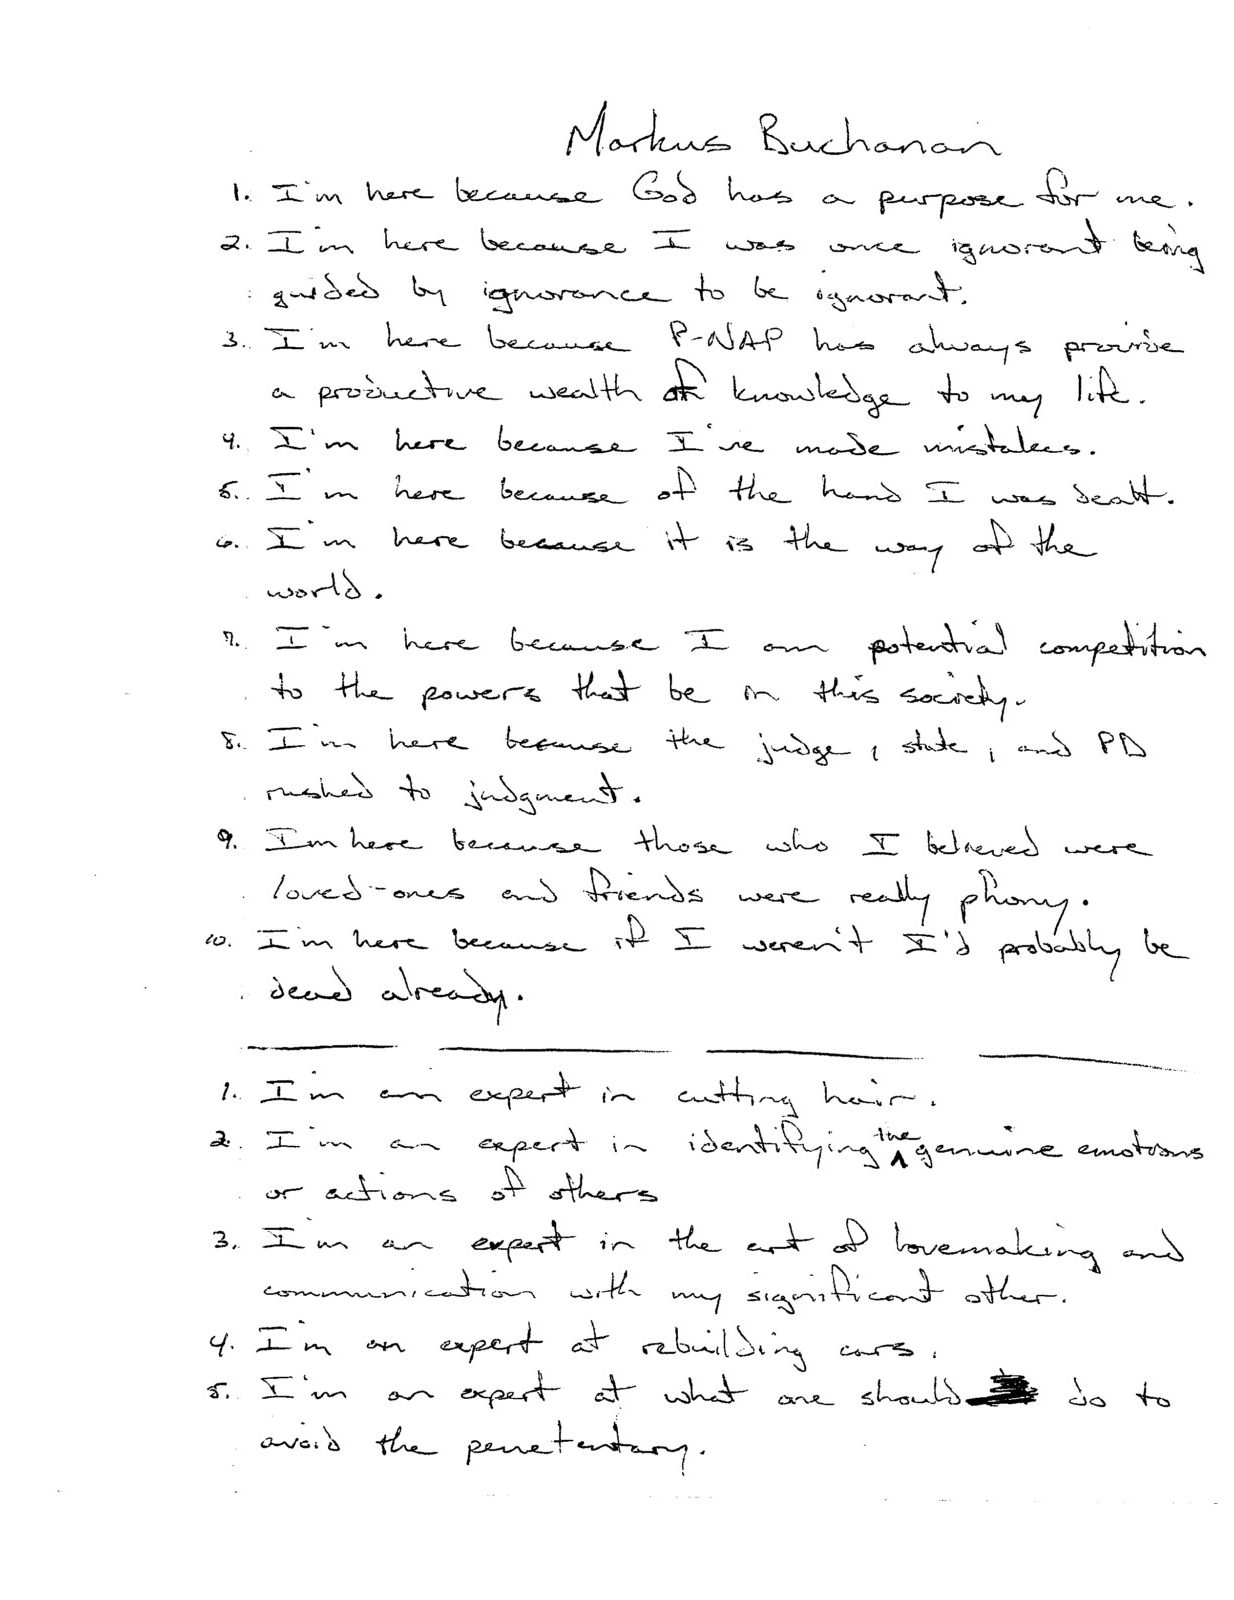 Markus Buchanan
1. I'm here because God has a purpose for me.
2. I'm here because I was once ignorant being
guided by ignorance to be ignorant.
3. I'm here because P-NAP has always provide
a productive wealth of knowledge to my life.
4. I'm here because I've made mistakes.
5. I'm here because of the hand I was dealt.
6. I'm here because it is the way of the
world.
7. I'm here because I am potential competition
to the powers that be in this society.
8. I'm here because the judge, state, and PD
rushed to judgment.
9. I'm here because those who I believed were
loved-ones and friends were really phony.
10. I'm here because if I weren't I'd probably be
dead already.
1. I'm an expert in cutting hair.
2. I'm an expert in identifying the genuine emotions
or actions of others
3. I'm an expert in the art of lovemaking and
communication with my significant other.
4. I'm an expert at rebuilding cars.
5. I'm an expert at what one should do to
avoid the penetentary.